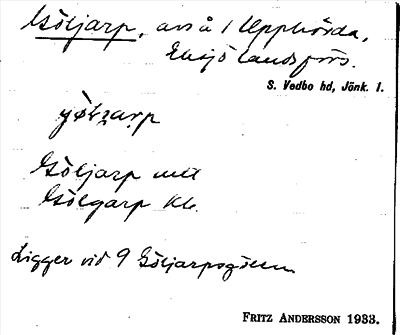 Göljarp, avs å 1 Upphörda,
Eksjö landsförs.
S. Vedbo hd, Jönk. l.
Göljarp
Gölgarp Kb.
Ligger vid 9 Göljarpsgölen
FRITZ ANDERSSON 1933.